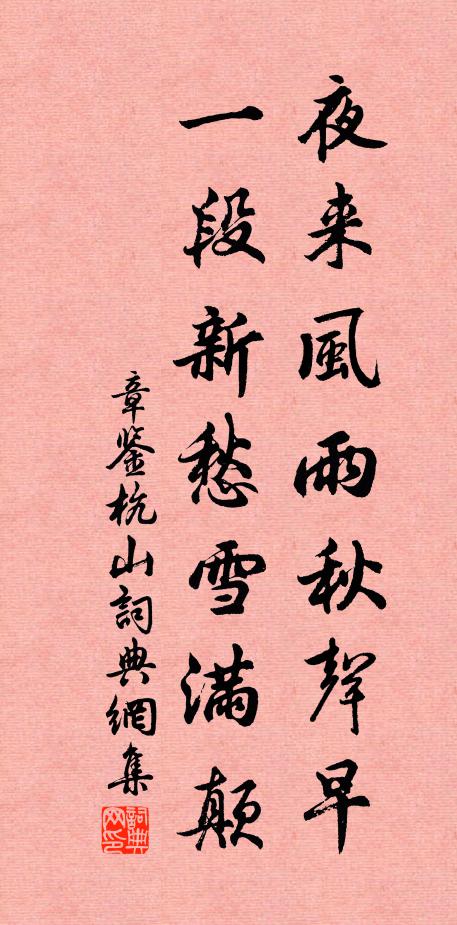 夜来風雨秋聲早
一段新愁雪滿顛
章鉴杭山詞典網集
詞典网印